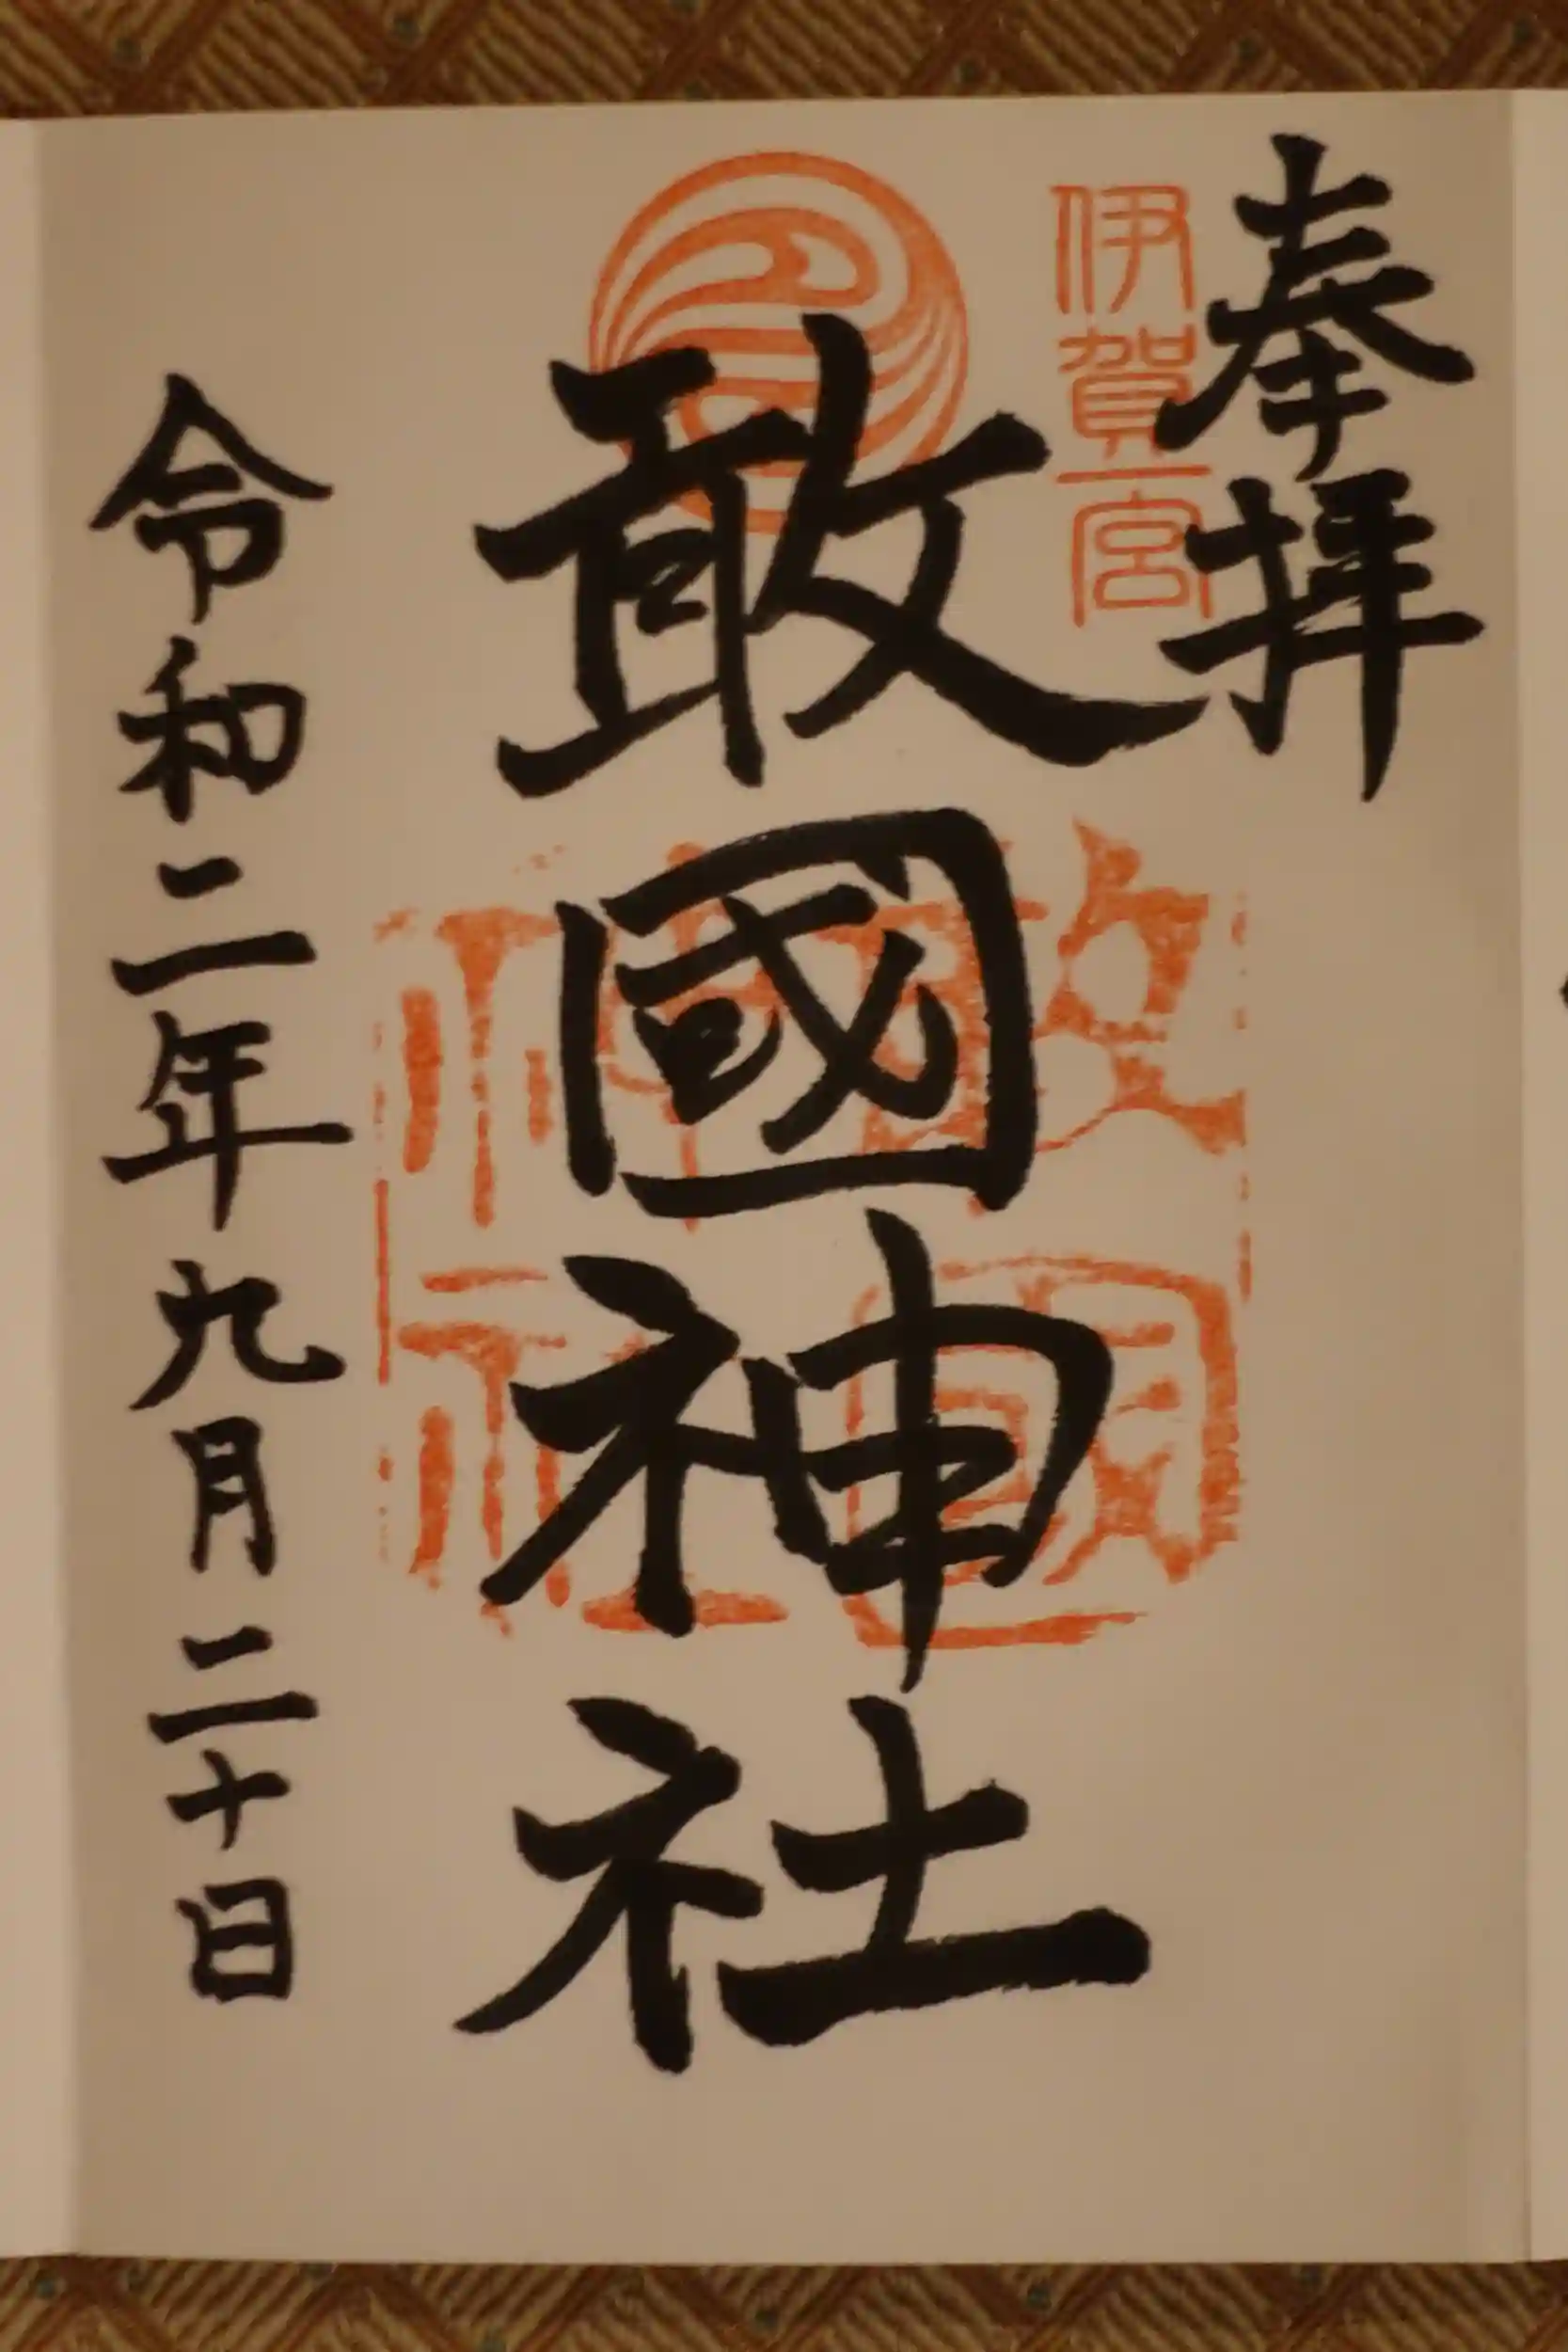 奉拝
伊賀一宮
敢國神社
敢國
神社
令和二年九月二十日